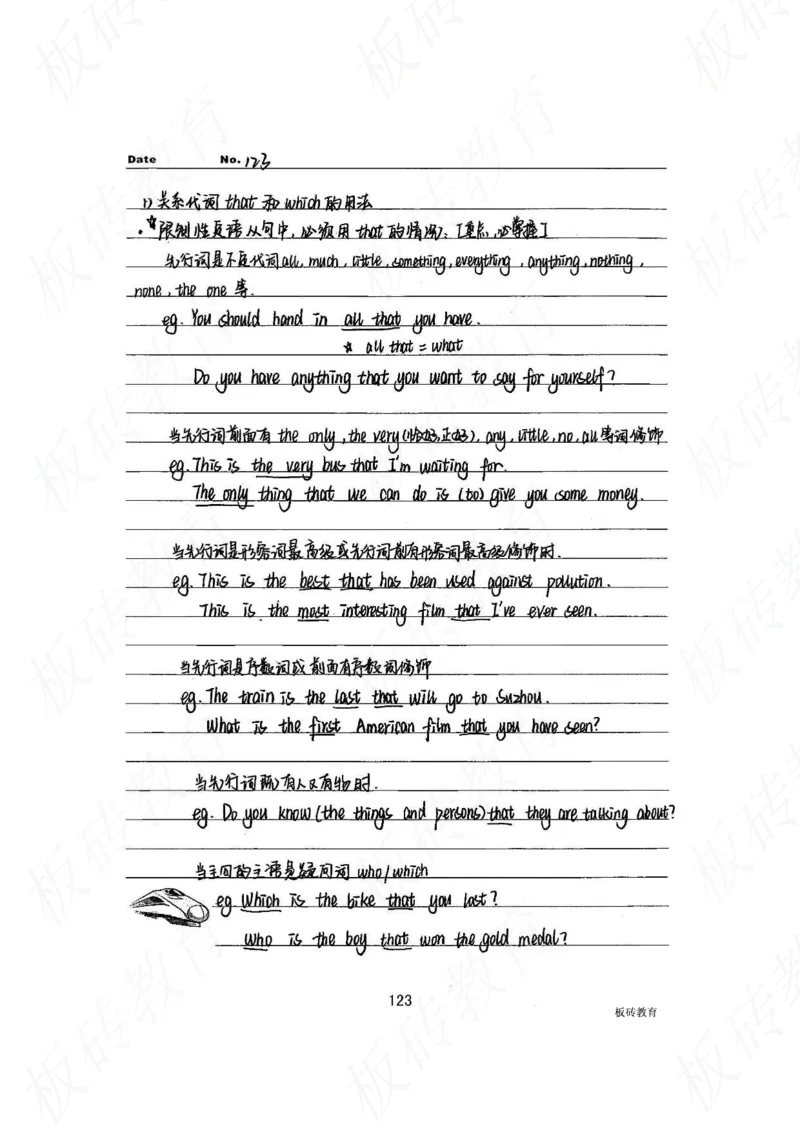 Date No. 123
1) 关系代词 that 和 which 的用法
·☆限制性定语从句中，必须用 that 的情况：[重点，必掌握]
先行词是不定代词 all, much, little, something, everything, anything, nothing,
none, the one 等.
eg. You should hand in all that you have.
☆ all that = what
Do you have anything that you want to say for yourself?
当先行词前面有 the only, the very(恰好,正好), any, little, no, all 等词修饰
eg. This is the very bus that I'm waiting for.
The only thing that we can do is (to) give you some money.
当先行词是形容词最高级或先行词前有形容词最高级修饰时.
eg. This is the best that has been used against pollution.
This is the most interesting film that I've ever seen.
当先行词是序数词或前面有序数词修饰
eg. The train is the last that will go to Suzhou.
What is the first American film that you have seen?
当先行词既有人又有物时.
eg. Do you know (the things and persons) that they are talking about?
当主句的主语是疑问词 who/which
eg. Which is the bike that you lost?
Who is the boy that won the gold medal?
123
板砖教育